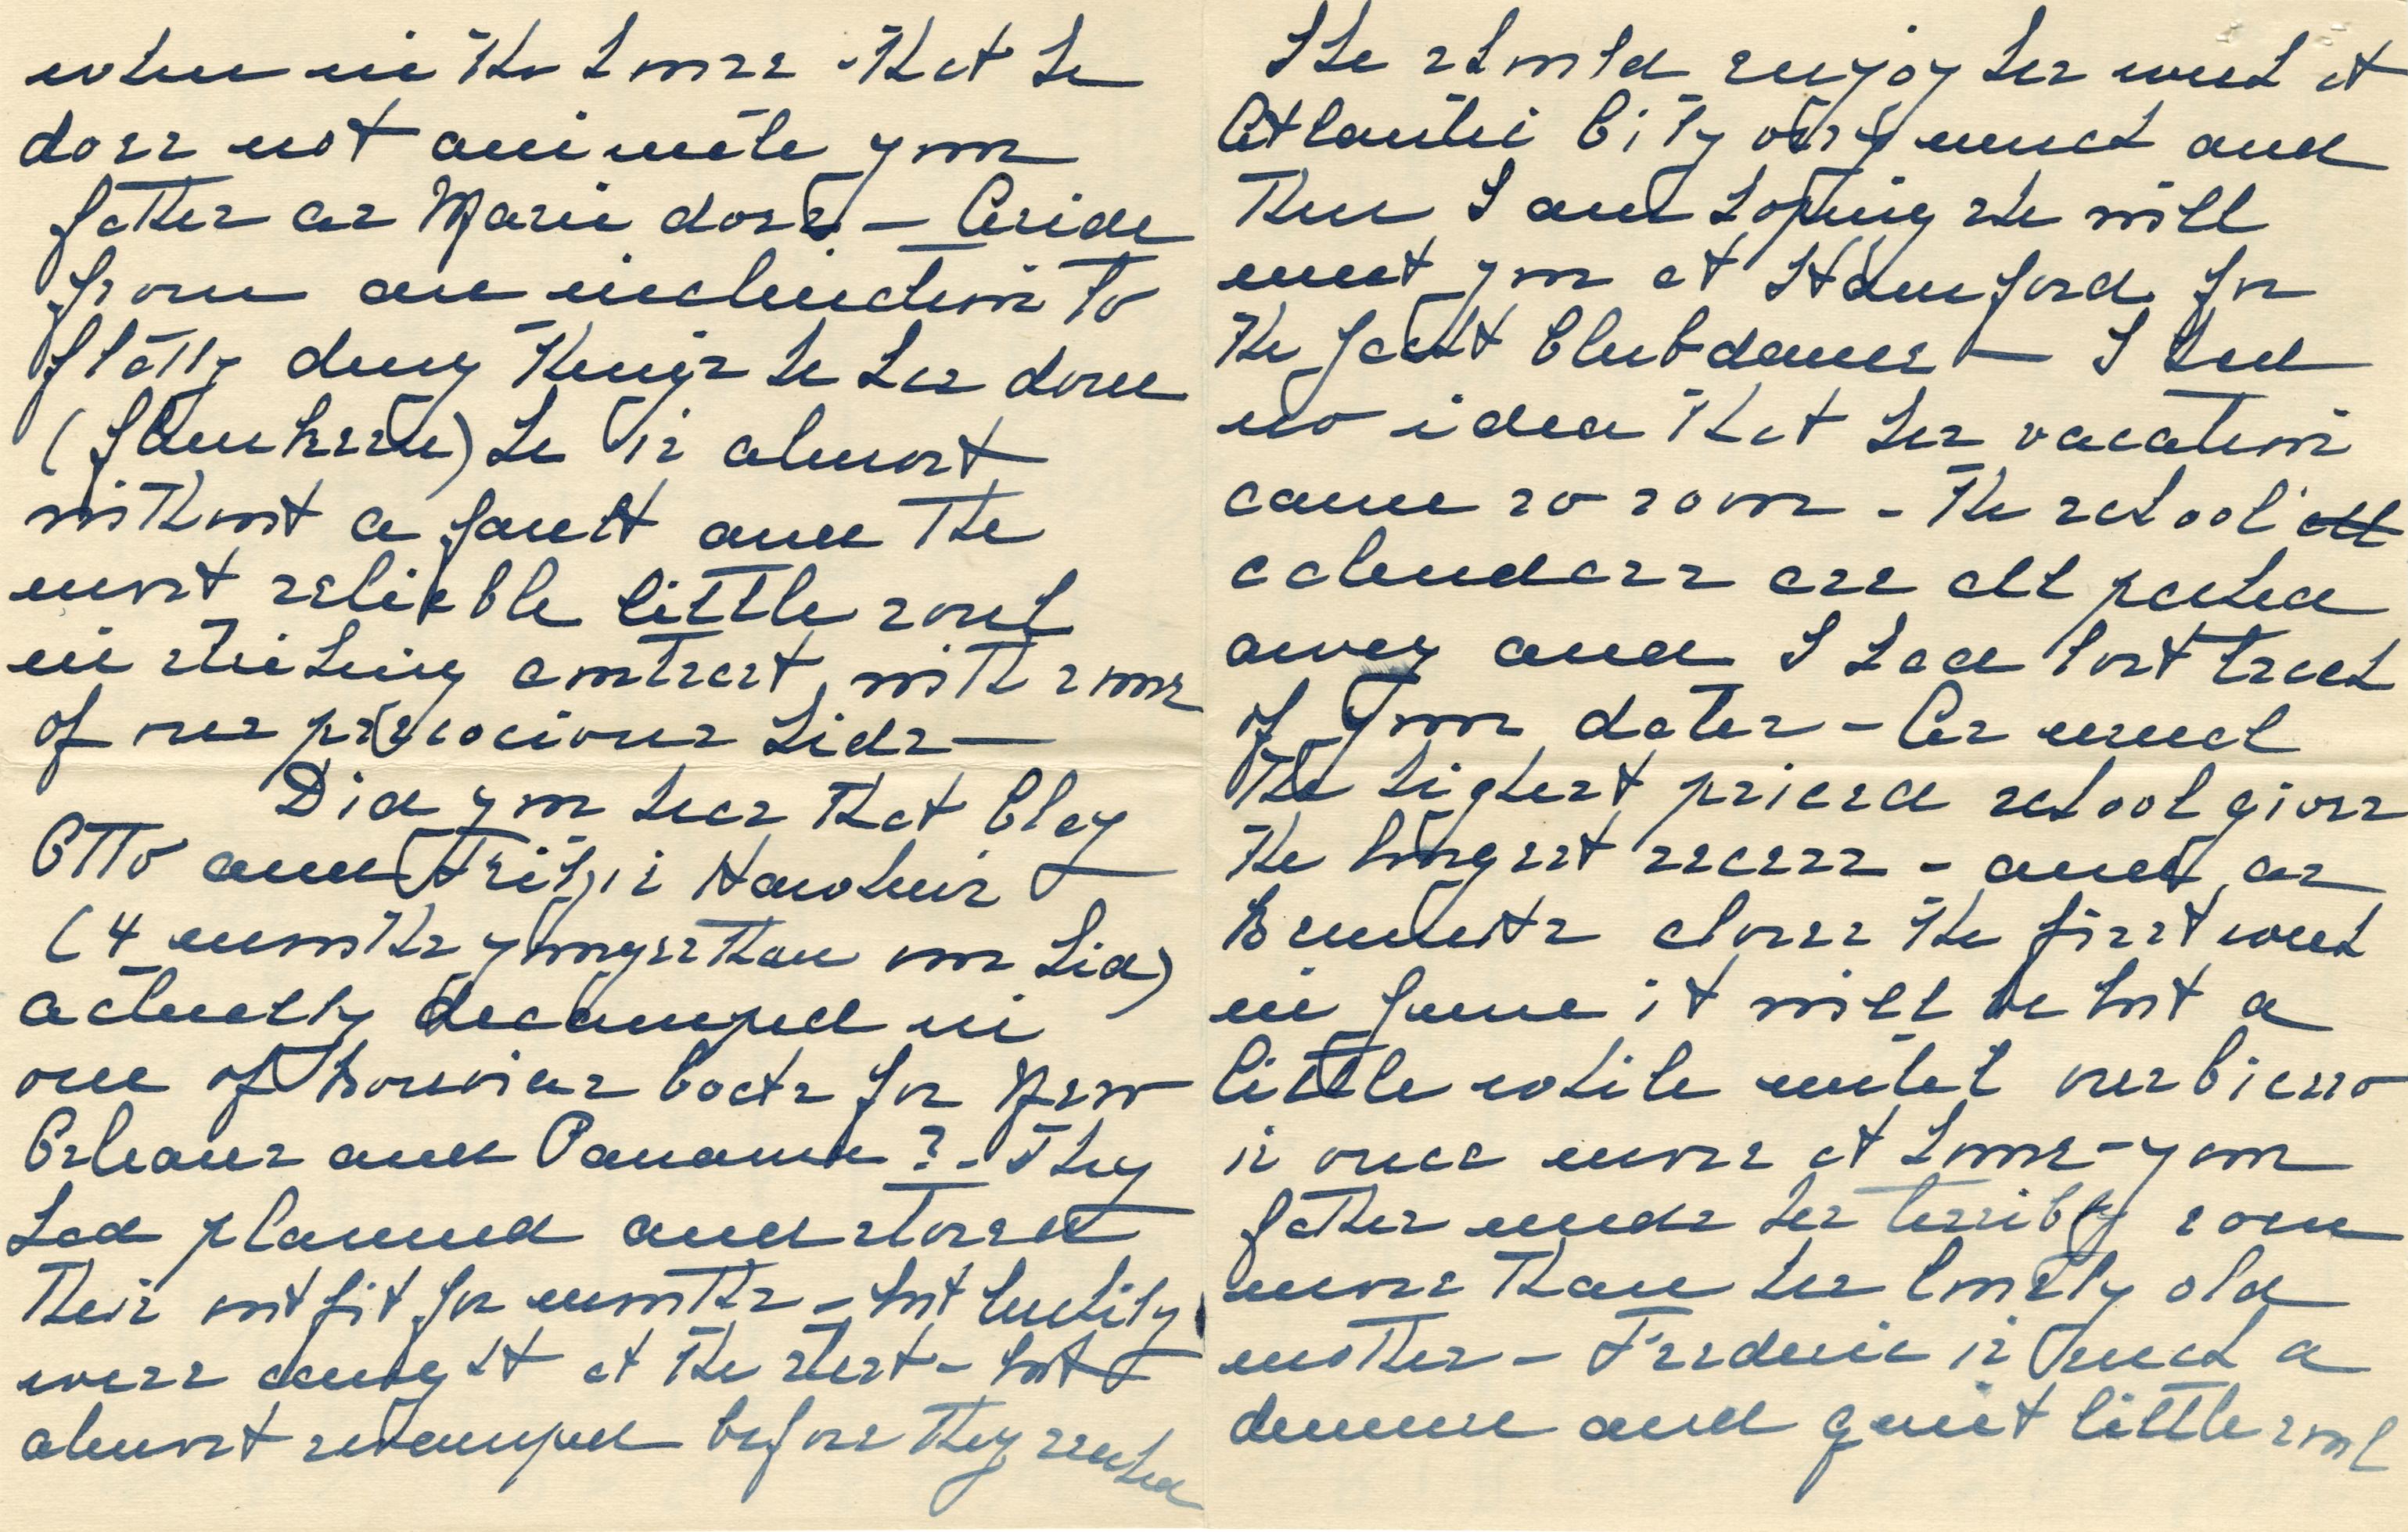 when in the house - that he
does not animate your
father as Marie does - Aside
from an inclination to
flatly deny things he has done
(foursheen) he is almost
without a fault and the
most reliable little soul
in striking contrast with some
of our precocious kids -
Did you hear that Clay
Otto and Fritzie Hawkins
(4 months younger than our kid)
actually decamped in
one of boats for New
Orleans and Panama? - They
had planned and stored
their outfit for months - but luckily
were caught at the start - but
almost revamped before they reached
She should enjoy her week at
Atlantic City very much and
then I am hoping she will
meet you at Stamford for
the Yacht Club dance - I had
no idea that her vacation
came so soon - The school all
calendars are all packed
away and I had lost track
of your dates - As usual
the highest priced school gives
the longest recess - and, as
Bennetts closes the first week
in June it will be but a
little while until our
is once more at home - your
father needs her terribly even
more than her lonely old
mother - Frederic is such a
demure and quiet little soul